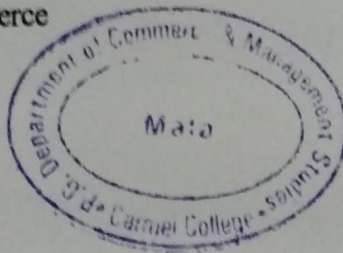 erce
P.G. Department of Commerce & Management Studies
Mala
Carmel College